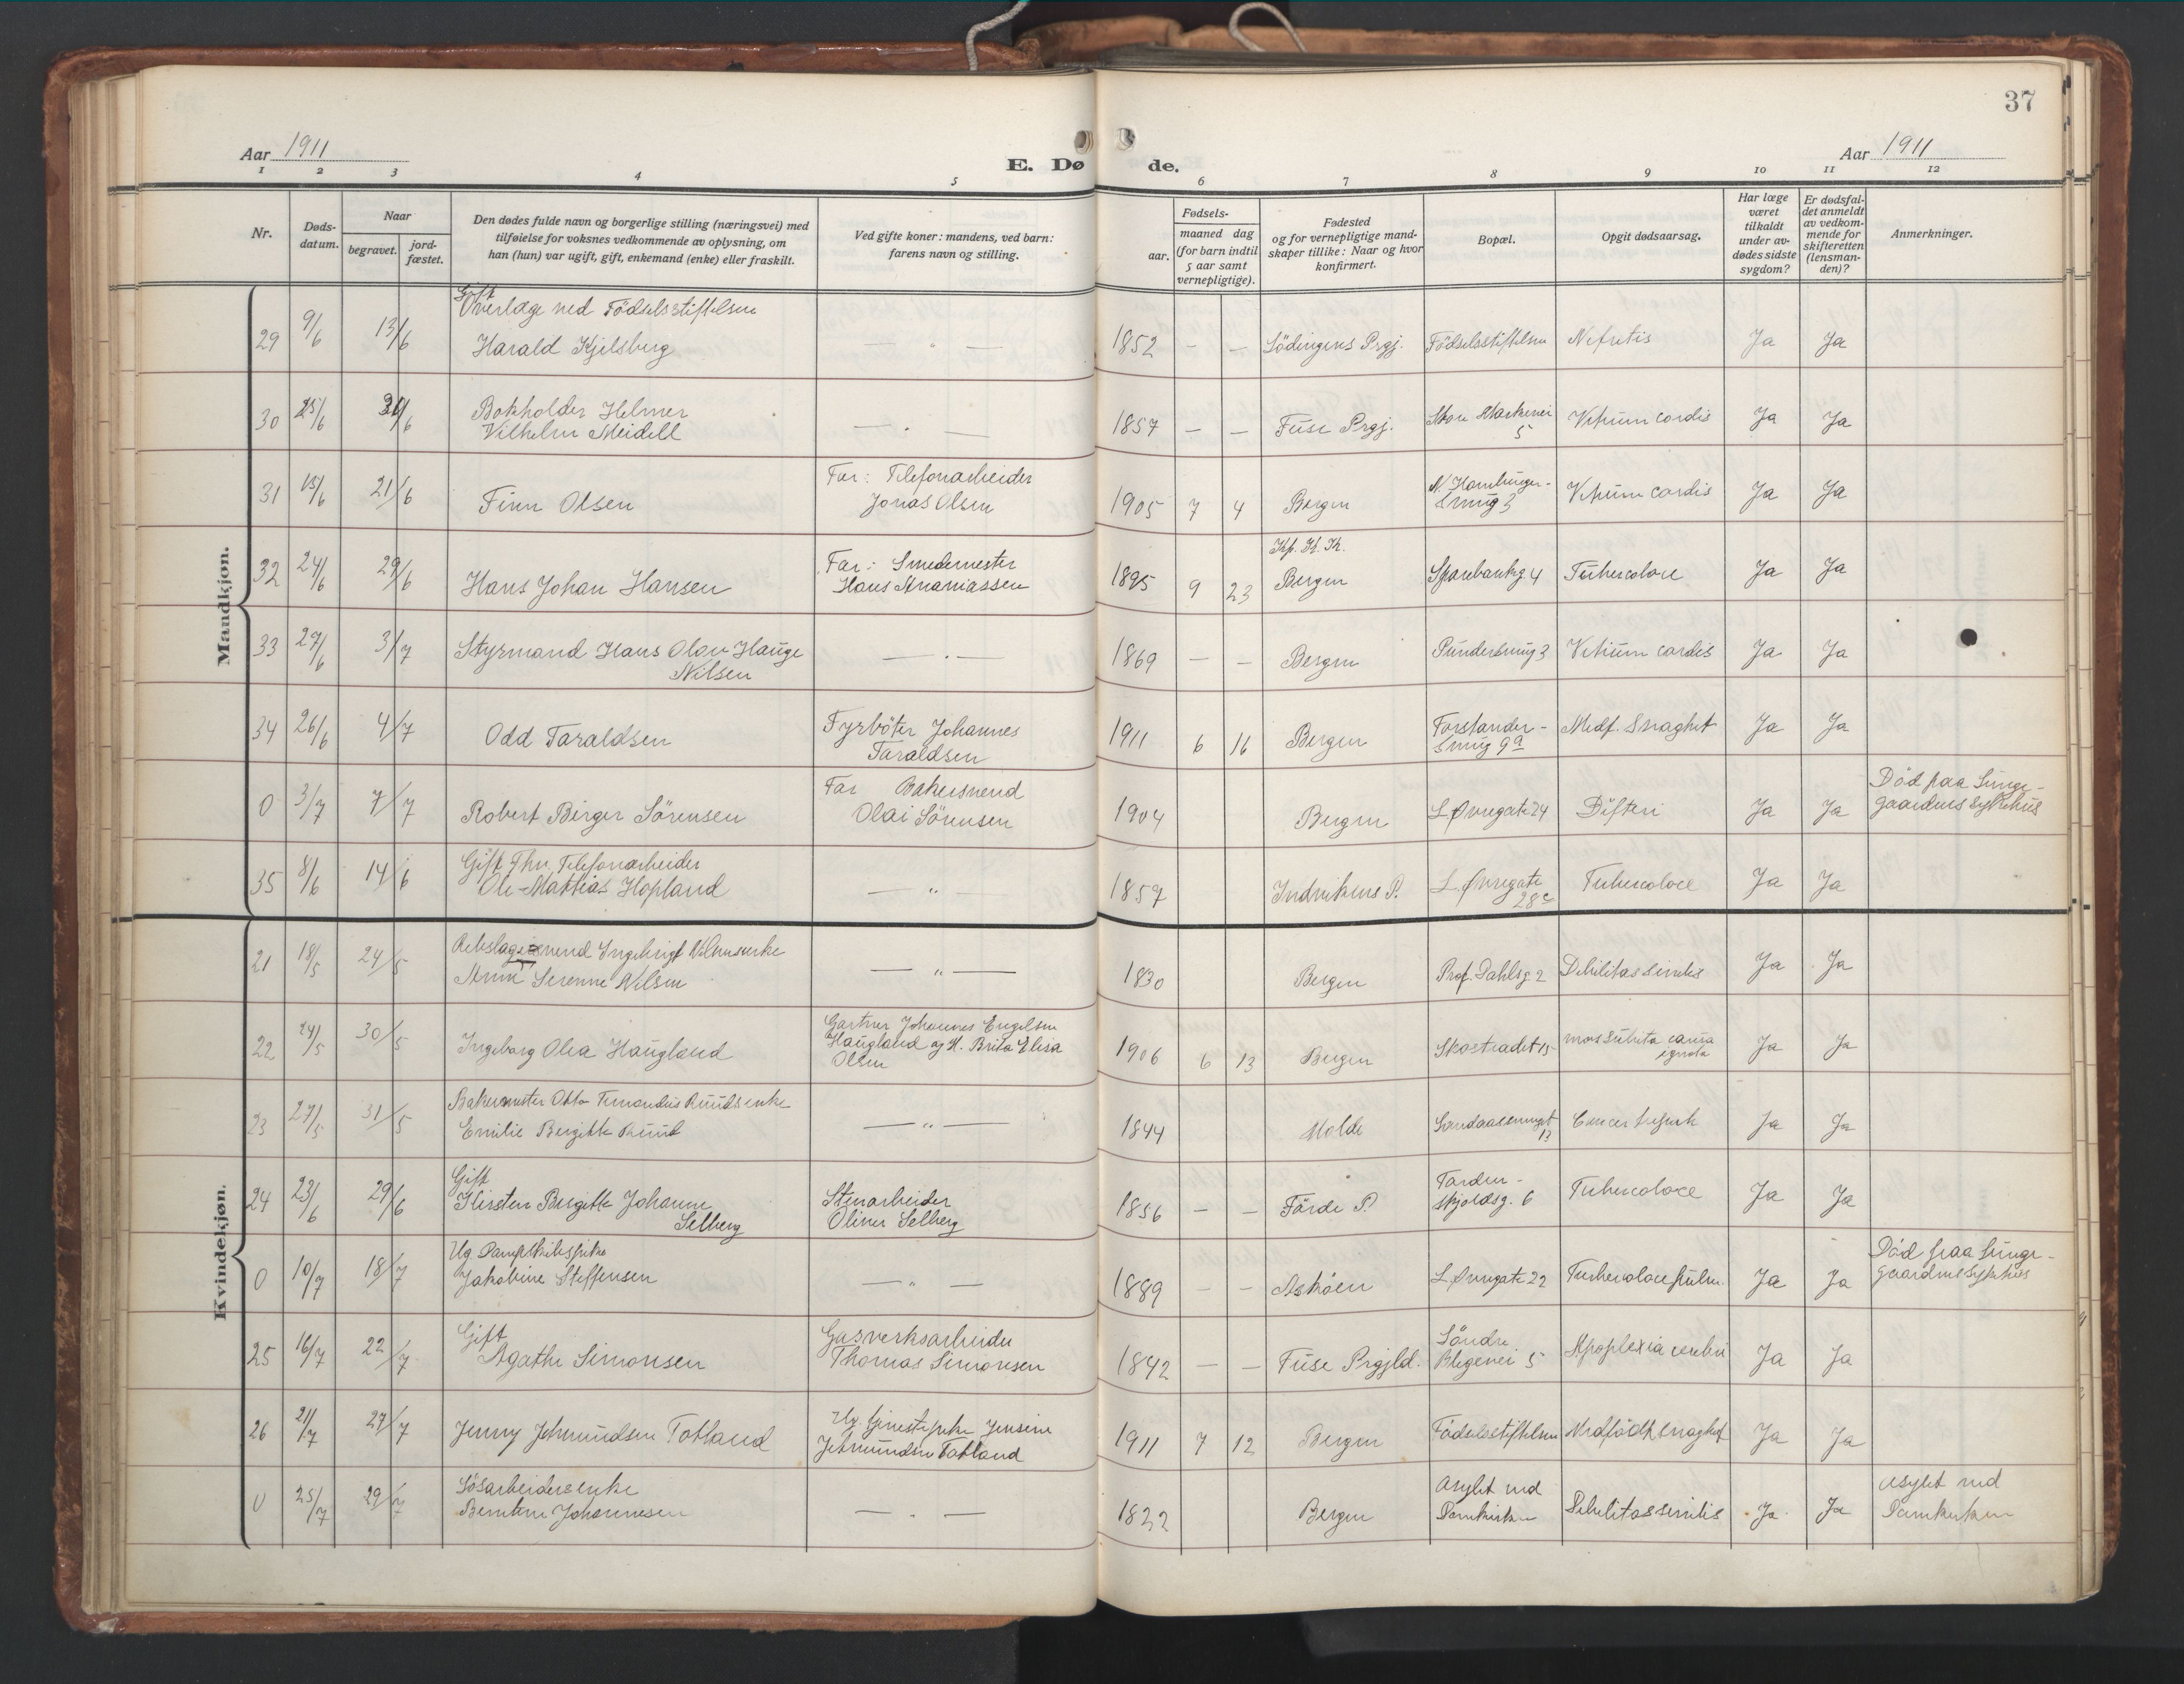 37
Aar 1911
E. Dø
de.
Aar 1911
1 2 3 4 5 6 7 8 9 10 11 12
Nr.
Døds-
datum.
Naar
begravet.
jord-
fæstet.
Den dødes fulde navn og borgerlige stilling (næringsvei) med
tilføielse for voksnes vedkommende av oplysning, om
han (hun) var ugift, gift, enkemand (enke) eller fraskilt.
Ved gifte koner: mandens, ved barn:
farens navn og stilling.
Fødsels-
aar.
maaned dag
(for barn indtil
5 aar samt
vernepligtige).
Fødested
og for vernepligtige mand-
skaper tillike: Naar og hvor
konfirmert.
Bopæl.
Opgit dødsaarsag.
Har læge
været
tilkaldt
under av-
dødes sidste
sygdom?
Er dødsfal-
det anmeldt
av vedkom-
mende for
skifteretten
(lensman-
den)?
Anmerkninger.
Mandkjøn.
Gift
Overlæge ved Födselsstiftelsen
29 9/6 13/6 Harald Kjelsberg — " — 1852 — — Lödingens Prgj. Födselsstiftelsen Nefritis Ja Ja
30 25/6 /6 Bokholder Helmer
Vilhelm Meidell — " — 1857 — — Fuse Prgj. Store Markevei
5 Vitium cordis Ja Ja
31 15/6 21/6 Finn Olsen Far: Telefonarbeider
Jonas Olsen 1905 7 4 Bergen N. Hamburger-
smug 3 Vitium cordis Ja Ja
32 24/6 29/6 Hans Johan Hansen Far: Smedemester
Hans Ananiassen 1895 9 23 Kp. K. K.
Bergen Sparebankg 4 Tuberculose Ja Ja
33 27/6 3/7 Styrmand Hans Olav Hauge
Nilsen — " — 1869 — — Bergen Pundersmug 3 Vitium cordis Ja Ja
34 26/6 4/7 Odd Taraldsen Fyrböter Johannes
Taraldsen 1911 6 16 Bergen Forstander-
smug 9a Medf. Svaghet Ja Ja
0 3/7 7/7 Robert Birger Sörensen Far Bakersvend
Olai Sörensen 1904 Bergen L. Øvregate 24 Difteri Ja Ja Död paa Lunge-
gaardens sykehus
35 8/6 14/6 Gift Fhv. Telefonarbeider
Ole Mattias Hopland — " — 1857 Indvikens P. L. Øvregate
28c Tuberculose Ja Ja
Kvindekjøn.
21 18/5 24/5 Ingebrigt Nilsens enke
Serenne Nilsen — " — 1830 Bergen Prof. Dahlsg 2 Debilitas senilis Ja Ja
22 24/5 30/5 Ingeborg Olea Haugland Gartner Johannes Engelsen
Haugland og H. Brita Elisa
Olsen 1906 6 13 Bergen Skostrædet 15 mors subita causa
ignota Ja Ja
23 27/5 31/5 Bakermester Otto Fernandus Ruuds enke
Emilie Bergitte Ruud — " — 1844 Molde Sandaassmuget
13 Cancer Ja Ja
24 23/6 29/6 Gift
Kirsten Bergitte Johanne
Selberg Stenarbeider
Oliner Selberg 1856 — — Förde P. Torden-
skjoldsg. 6 Tuberculose Ja Ja
0 10/7 18/7 Ug. Dampskibspike
Jakobine Steffensen — " — 1889 — — Asköen L. Øvregate 22 Tuberculose pulm. Ja Ja Död paa Lunge-
gaardens sykehus
25 16/7 22/7 Gift
Agathe Simonsen Gasverksarbeider
Thomas Simonsen 1842 — — Fuse Prgjld. Söndre
Blegevei 5 Apoplexia cerebri Ja Ja
26 21/7 27/7 Jenny Jetmundsen Totland Ug. tjenestepike Jensine
Jetmundsen Totland 1911 7 12 Bergen Födselsstiftelsen Medfödt svaghet Ja Ja
0 25/7 29/7 Lösarbeiders enke
Berntine Johannesen — " — 1822 Bergen Asylet ved
Domkirken Debilitas senilis Ja Ja Asylet ved
Domkirken